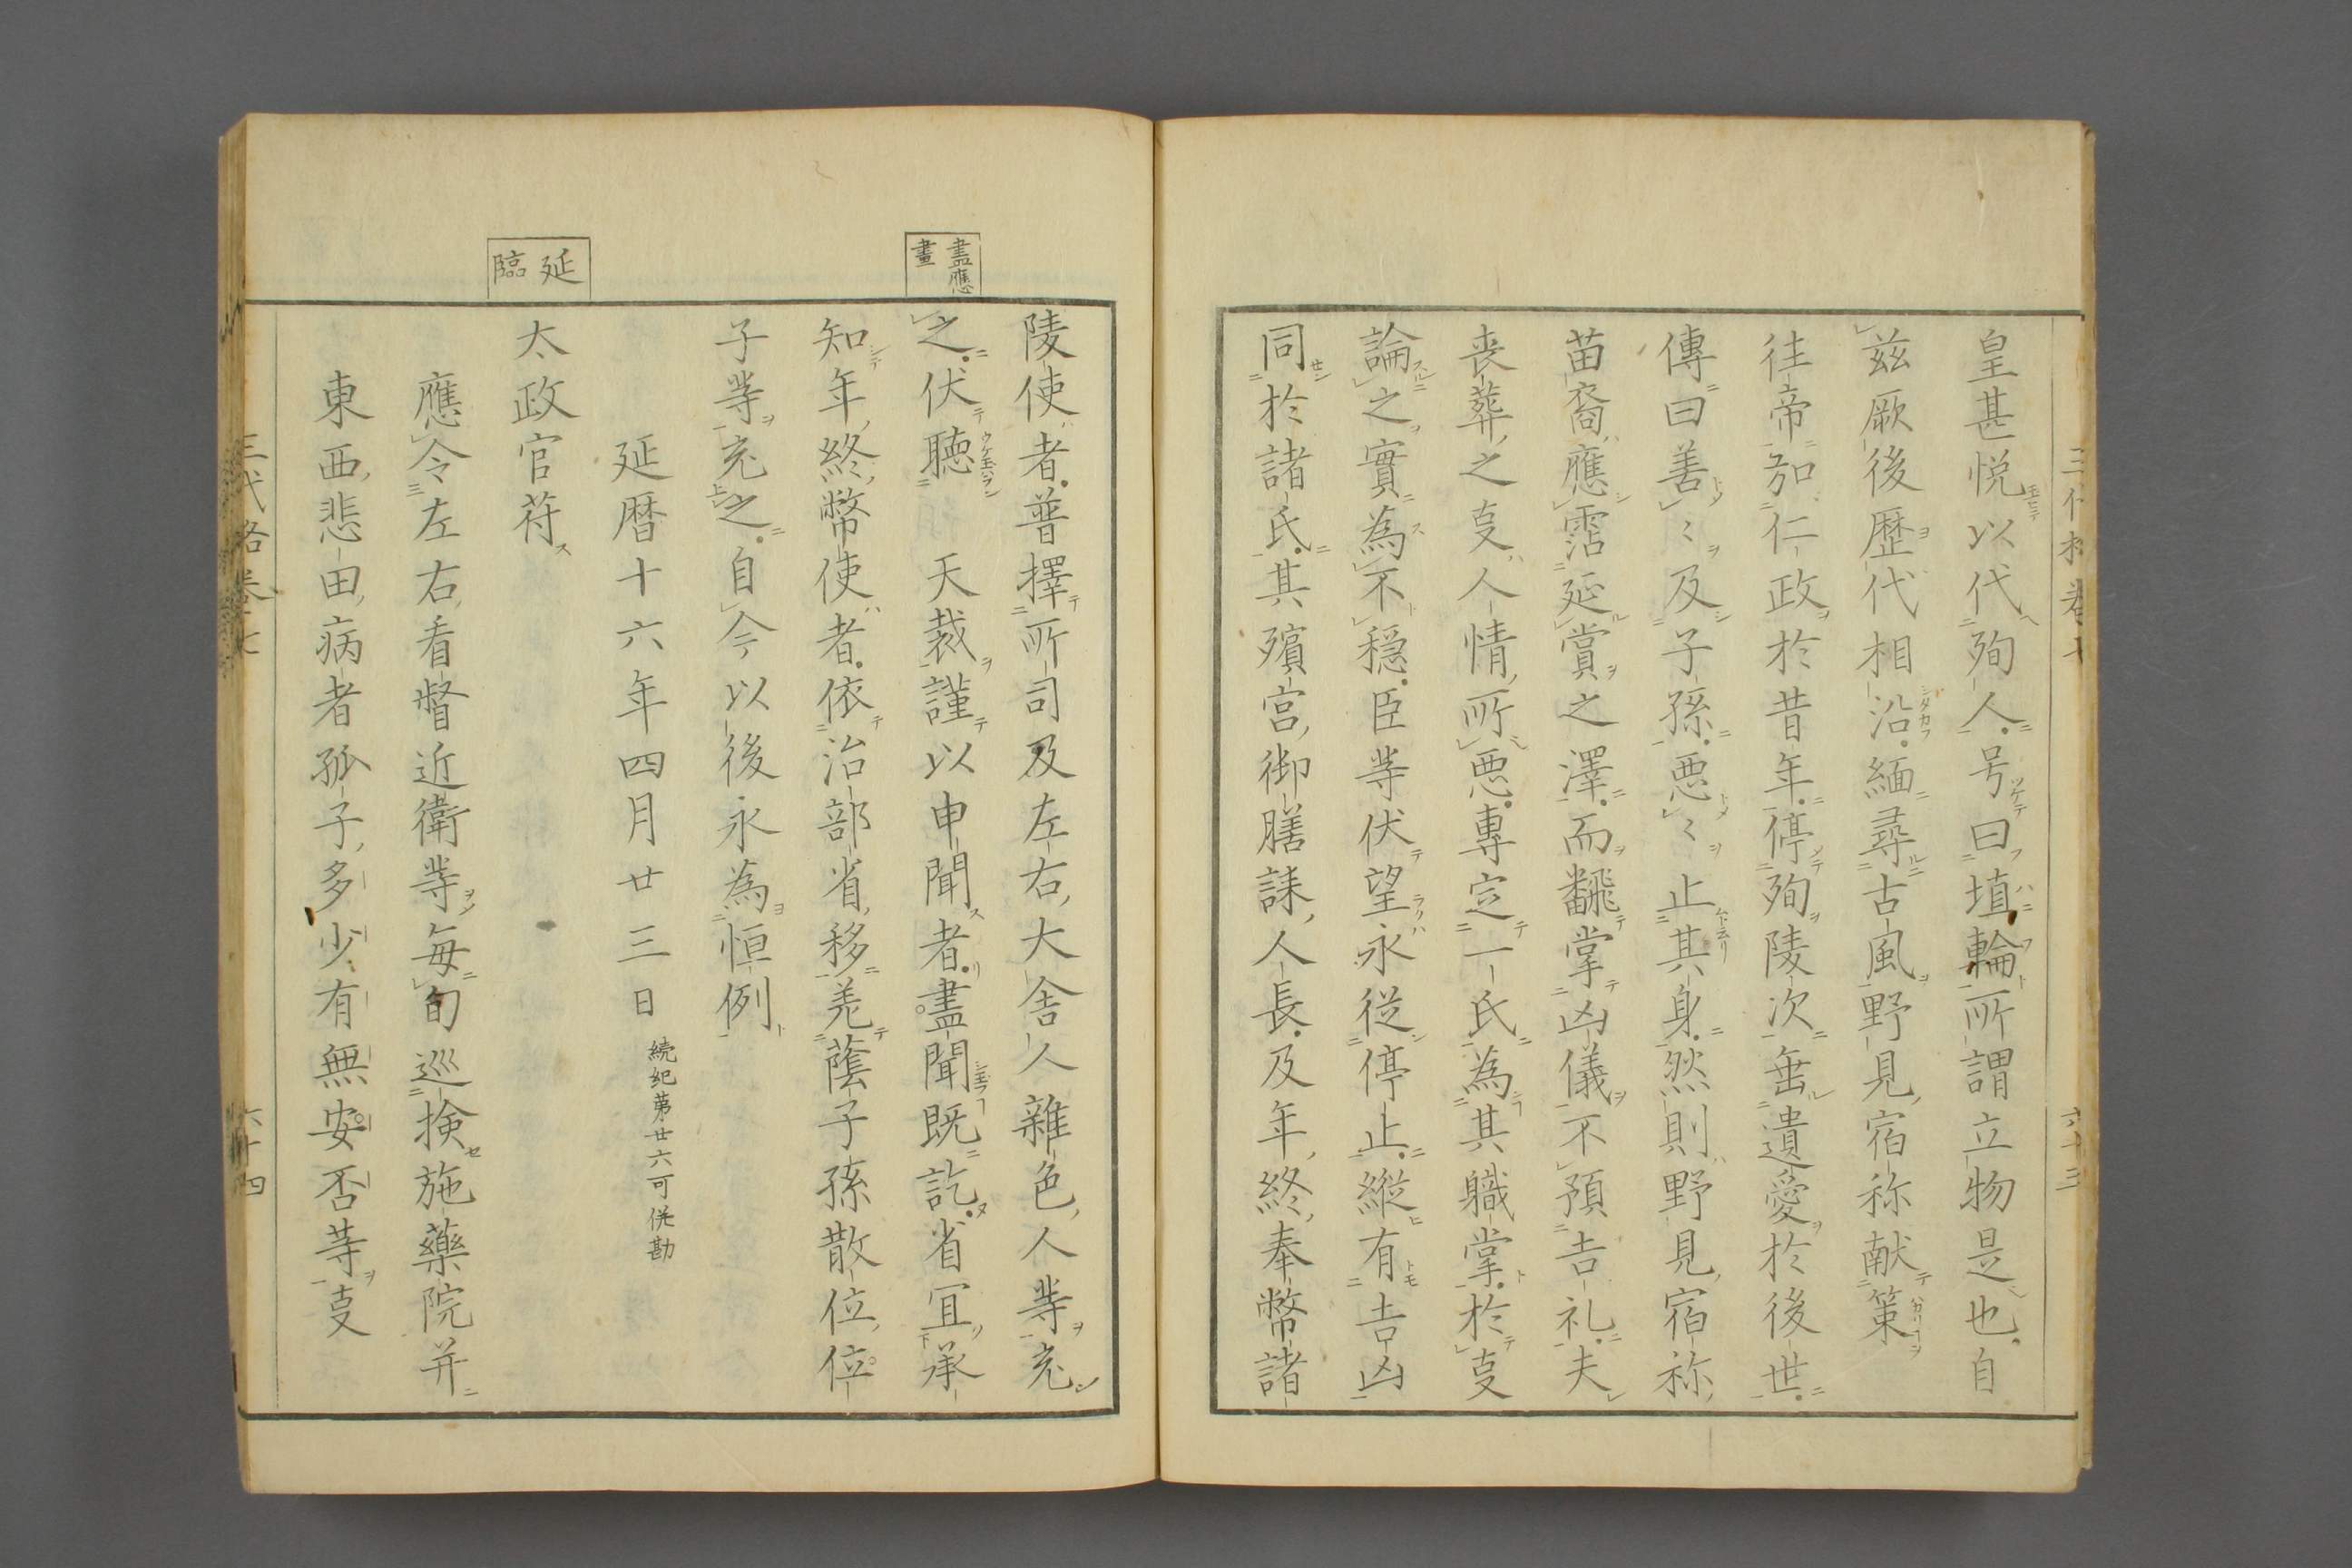 皇甚悦以代殉人号曰埴輪所謂立物是也自
兹厥後歴代相沿緬尋古風野見宿祢献策
往帝加仁政於昔年停殉陵次垂遺愛於後世
傳曰善〻及子孫悪〻止其身然則野見宿祢
苗裔應霑延賞之澤而飜掌凶儀不預吉礼夫
喪葬之㕝人情所悪專定一氏為其職掌於㕝
論之實為不穏臣等伏望永従停止縦有吉凶
同於諸氏其殯宮御膳誄人長及年終奉幣諸
盡應
畫
陵使者普擇所司及左右大舎人雑色人等充
之伏聴 天裁謹以申聞者盡聞既訖省宜承
知年終幣使者依治部省移差蔭子孫散位位
子等充之自今以後永為恒例
延暦十六年四月廿三日 続紀第廿六可併勘
延
臨
太政官符
應令左右看督近衛等毎旬巡検施藥院并
東西悲田病者孤子多少有無安否等㕝